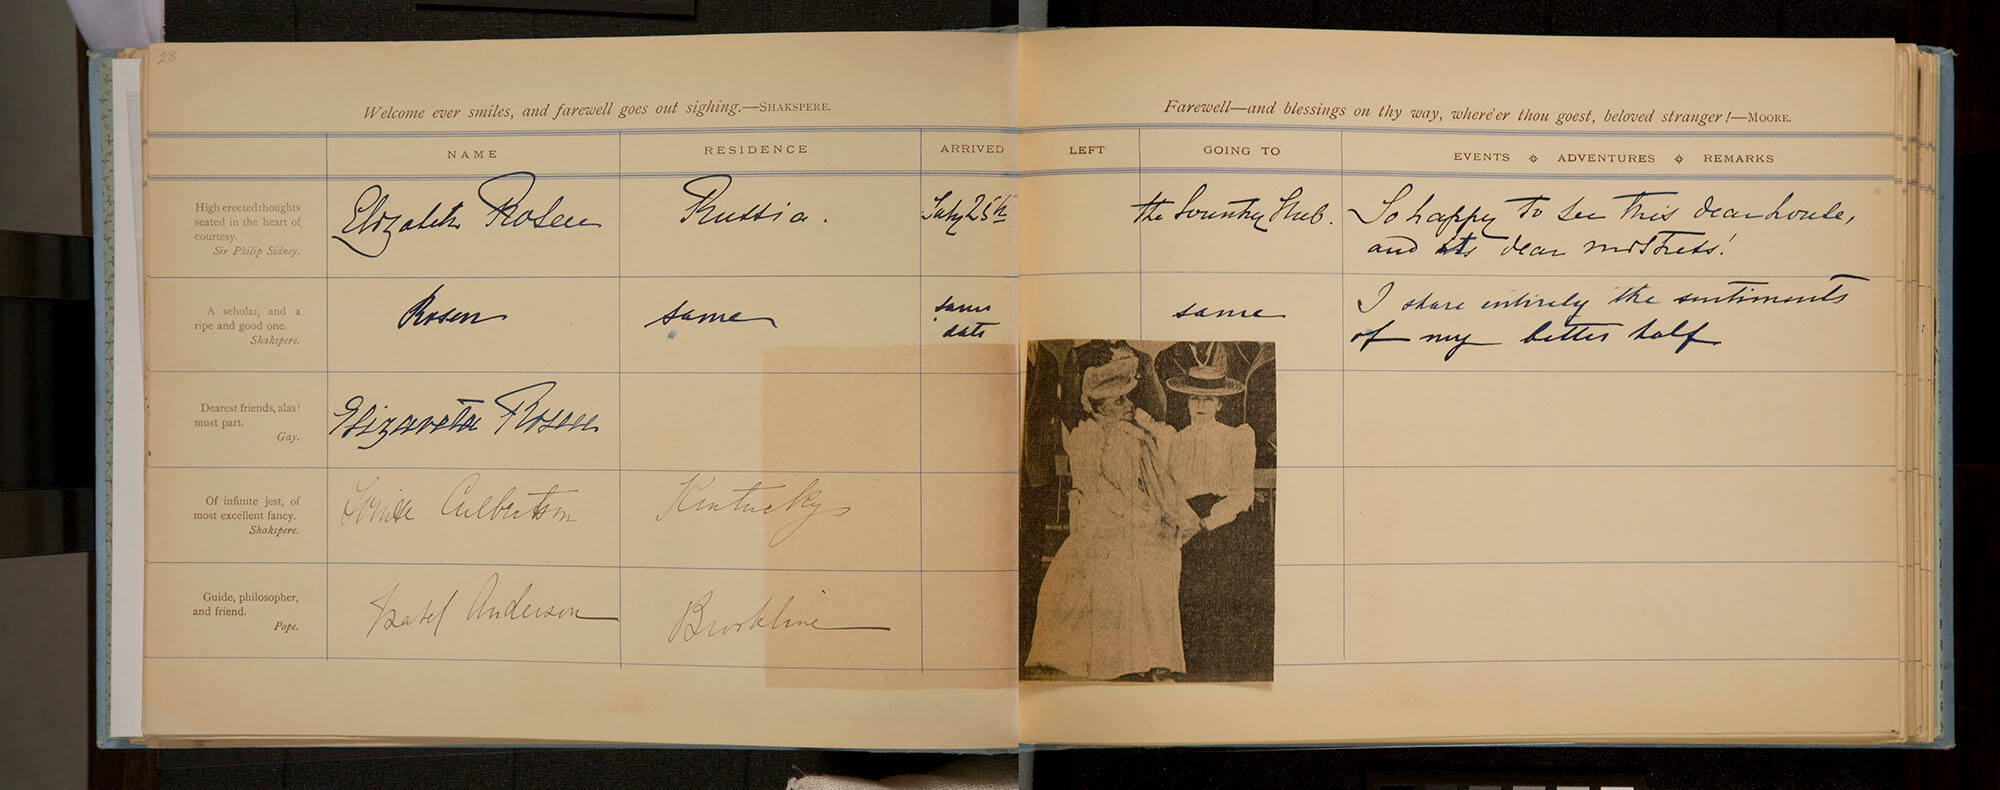 28
Welcome ever smiles, and farewell goes out sighing.—SHAKSPERE.
NAME RESIDENCE ARRIVED
High erected thoughts
seated in the heart of
courtesy.
Sir Philip Sidney.
Elizabeth Rosen Russia. July 25th
A scholar, and a
ripe and good one.
Shakspere.
Rosen same same
date
Dearest friends, alas!
must part.
Gay.
Elizaveta Rosen
Of infinite jest, of
most excellent fancy.
Shakspere.
Culbertson Kentucky
Guide, philosopher,
and friend.
Pope.
Isabel Anderson Brookline
Farewell—and blessings on thy way, where'er thou goest, beloved stranger!—MOORE.
LEFT GOING TO EVENTS ADVENTURES REMARKS
the Country Club. So happy to see this dear house,
and its dear mistress!
same I share entirely the sentiments
of my better half